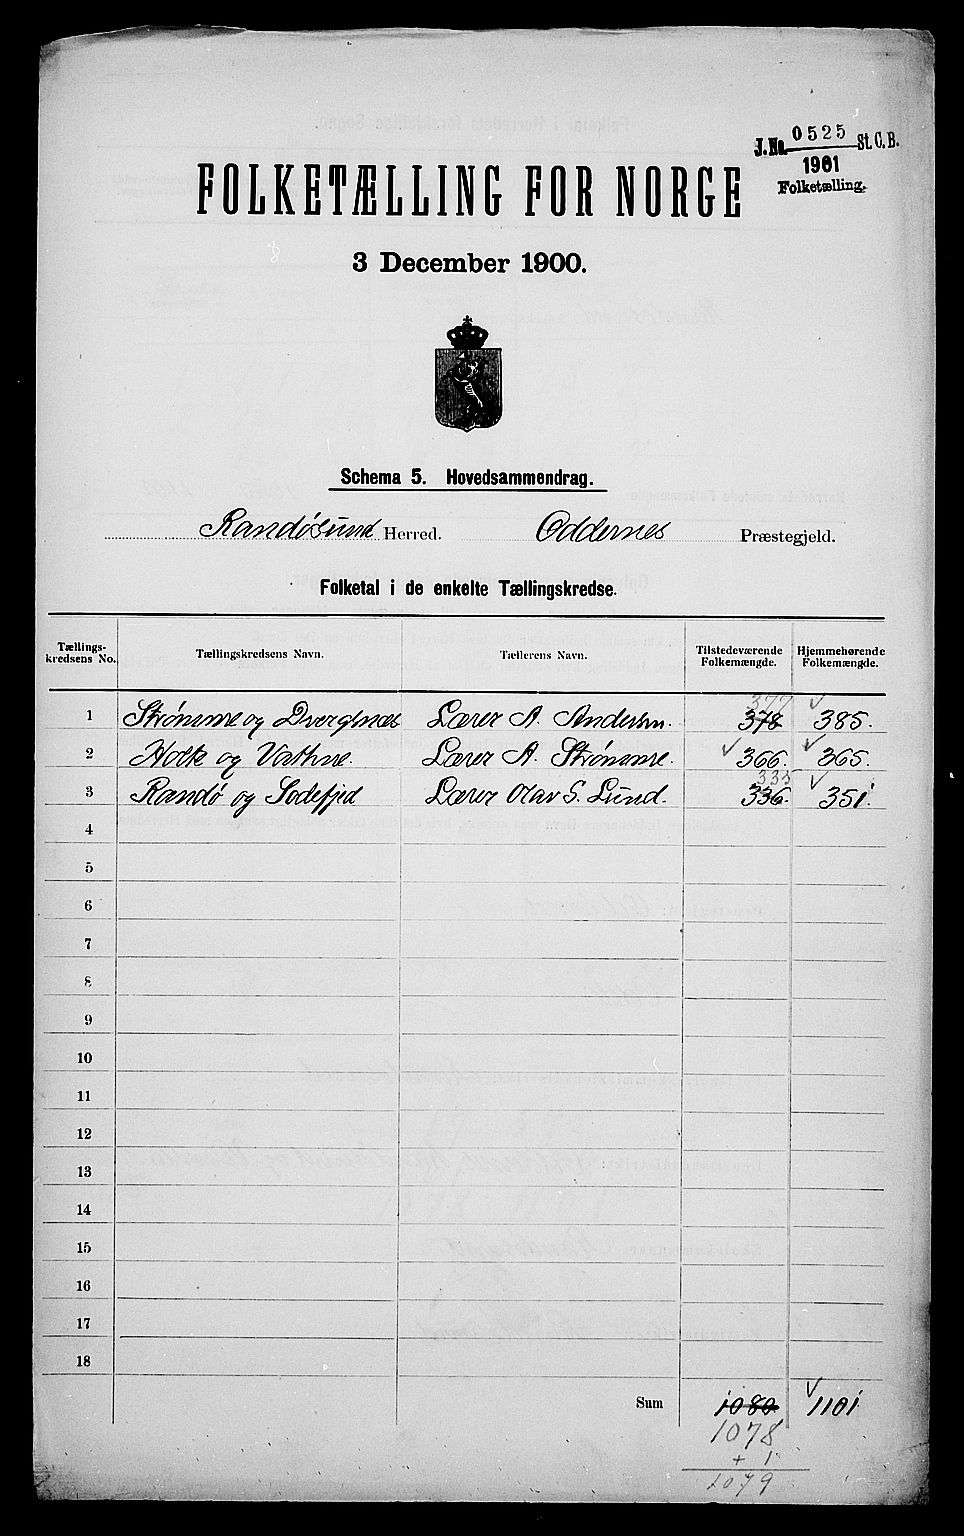 J.No. 0525 St.C.B.
1901
Folketælling.
FOLKETÆLLING FOR NORGE
3 December 1900.
Schema 5. Hovedsammendrag.
Randøsund Herred. Oddernes Præstegjeld.
Folketal i de enkelte Tællingskredse.
Tællings-kredsens No. Tællingskredsens Navn. Tællerens Navn. Tilstedeværende Folkemængde. Hjemmehørende Folkemængde.
377
1 Strømme og Dvergsnæs Lærer A. Andersen. 378 385.
2 Holte og Vathne. Lærer A. Strømme. 366. 365.
335
3 Randø og Sodefjed Lærer Olav S. Lund. 336. 351.
4
5
6
7
8
9
10
11
12
13
14
15
16
17
18
Sum 1080 1101
1078
+ 1
1079